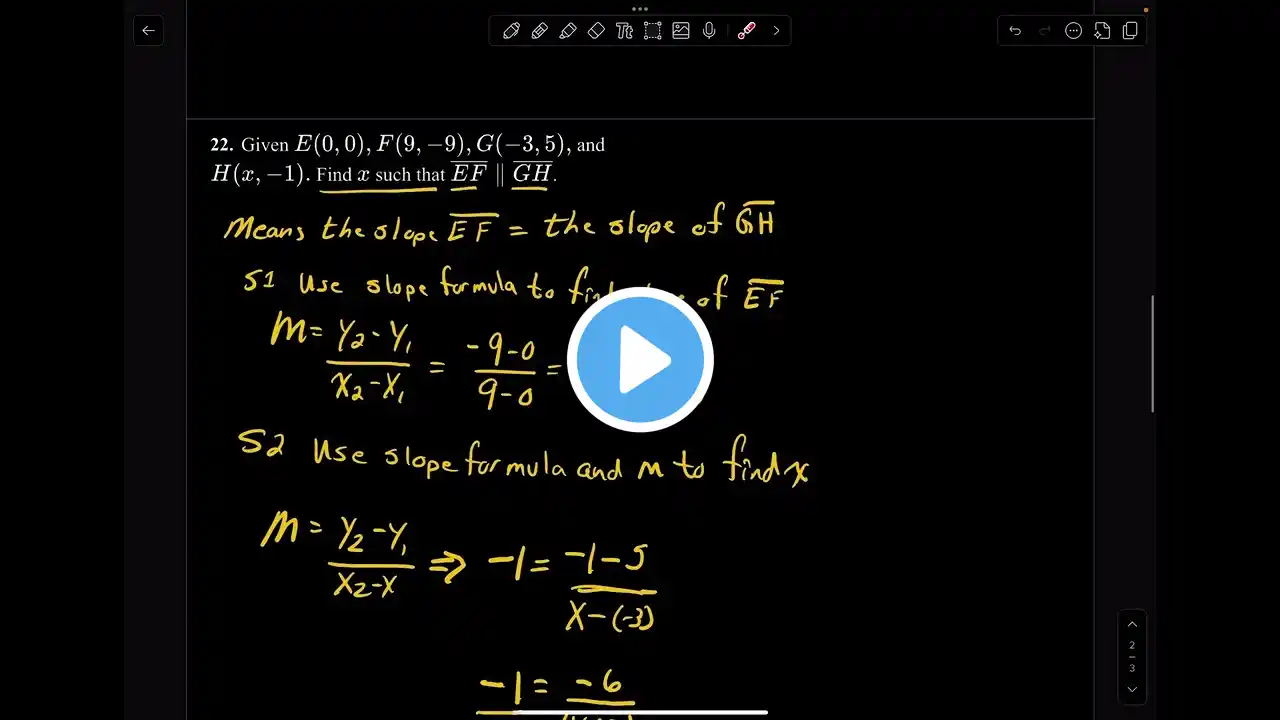 Tt
22. Given E(0, 0), F(9, −9), G(−3, 5), and
H(x, −1). Find x such that EF ∥ GH.
Means the slope EF = the slope of GH
S1 Use slope formula to of EF
M = Y2 - Y1 / X2 - X1 = -9-0 / 9-0 =
S2 Use slope formula and m to find x
M = Y2 - Y1 / X2 - X ⇒ -1 = -1-5 / X-(-3)
-1 = -6
2
3